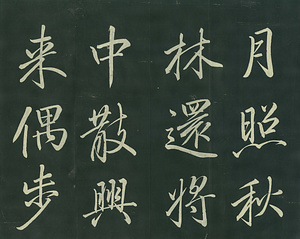 月照秋
林還將
中散興
来偶步